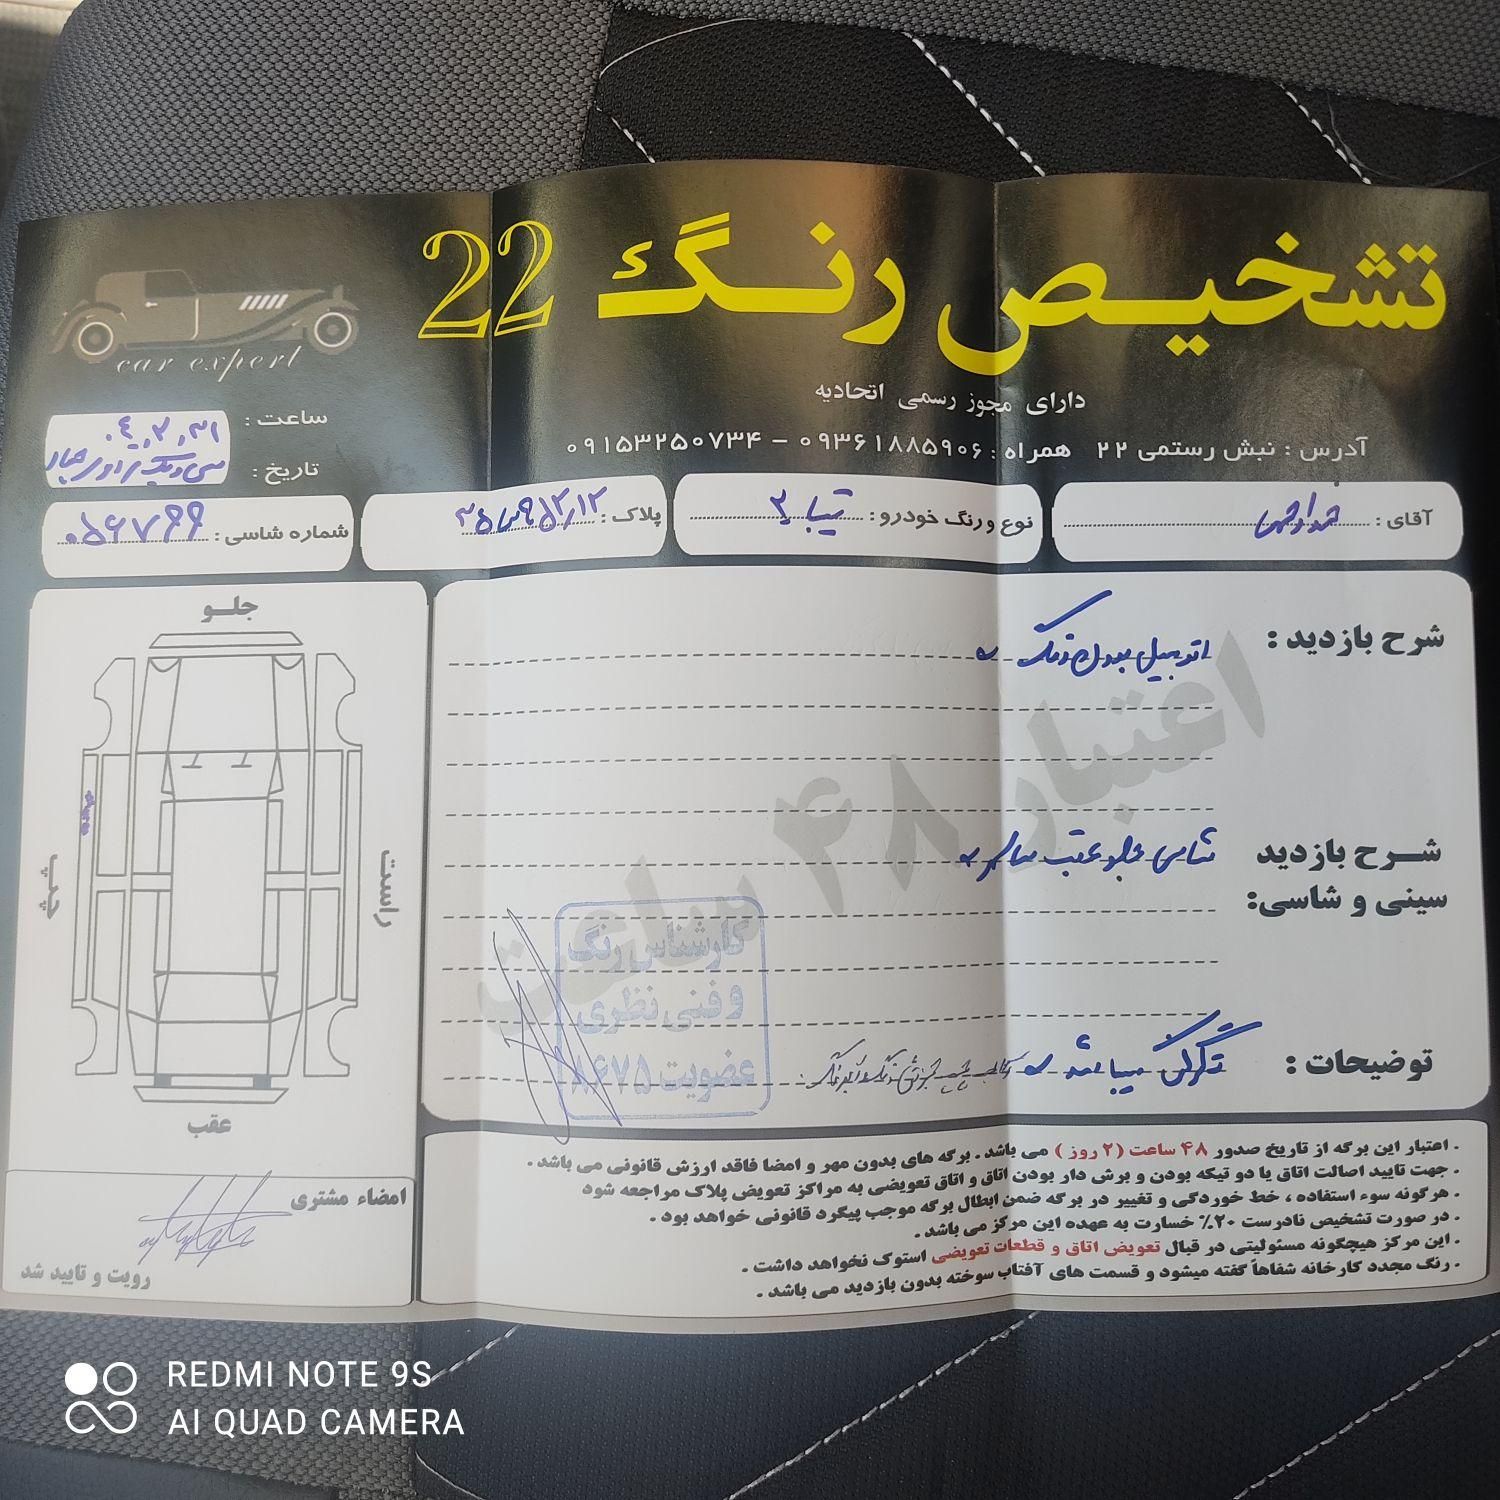 تشخیص رنگ 22
car expert
دارای مجوز رسمی اتحادیه
آدرس : نبش رستمی ۲۲ همراه : ۰۹۳۶۱۸۸۵۹۰۶ – ۰۹۱۵۳۲۵۰۷۳۴
ساعت : ۰۴,۲,۳۱
تاریخ :
آقای :
نوع و رنگ خودرو : تیبا ۲
پلاک :
شماره شاسی :
شرح بازدید : اتومبیل بدون رنگ
شرح بازدید
سینی و شاسی: شاسی جلو عقب سالم
توضیحات : تگرگی میباشد
اعتبار ۴۸ ساعت
کارشناس رنگ
و فنی نظری
عضویت ۸۶۷۵
جلو
چپ
راست
عقب
امضاء مشتری
رویت و تایید شد
. اعتبار این برگه از تاریخ صدور ۴۸ ساعت (۲ روز ) می باشد . برگه های بدون مهر و امضا فاقد ارزش قانونی می باشد .
. جهت تایید اصالت اتاق یا دو تیکه بودن و برش دار بودن اتاق و اتاق تعویضی به مراکز تعویض پلاک مراجعه شود
. هرگونه سوء استفاده ، خط خوردگی و تغییر در برگه ضمن ابطال برگه موجب پیگرد قانونی خواهد بود .
. در صورت تشخیص نادرست ۲۰٪ خسارت به عهده این مرکز می باشد .
. این مرکز هیچگونه مسئولیتی در قبال تعویض اتاق و قطعات تعویضی استوک نخواهد داشت .
. رنگ مجدد کارخانه شفاهاً گفته میشود و قسمت های آفتاب سوخته بدون بازدید می باشد .
REDMI NOTE 9S
AI QUAD CAMERA